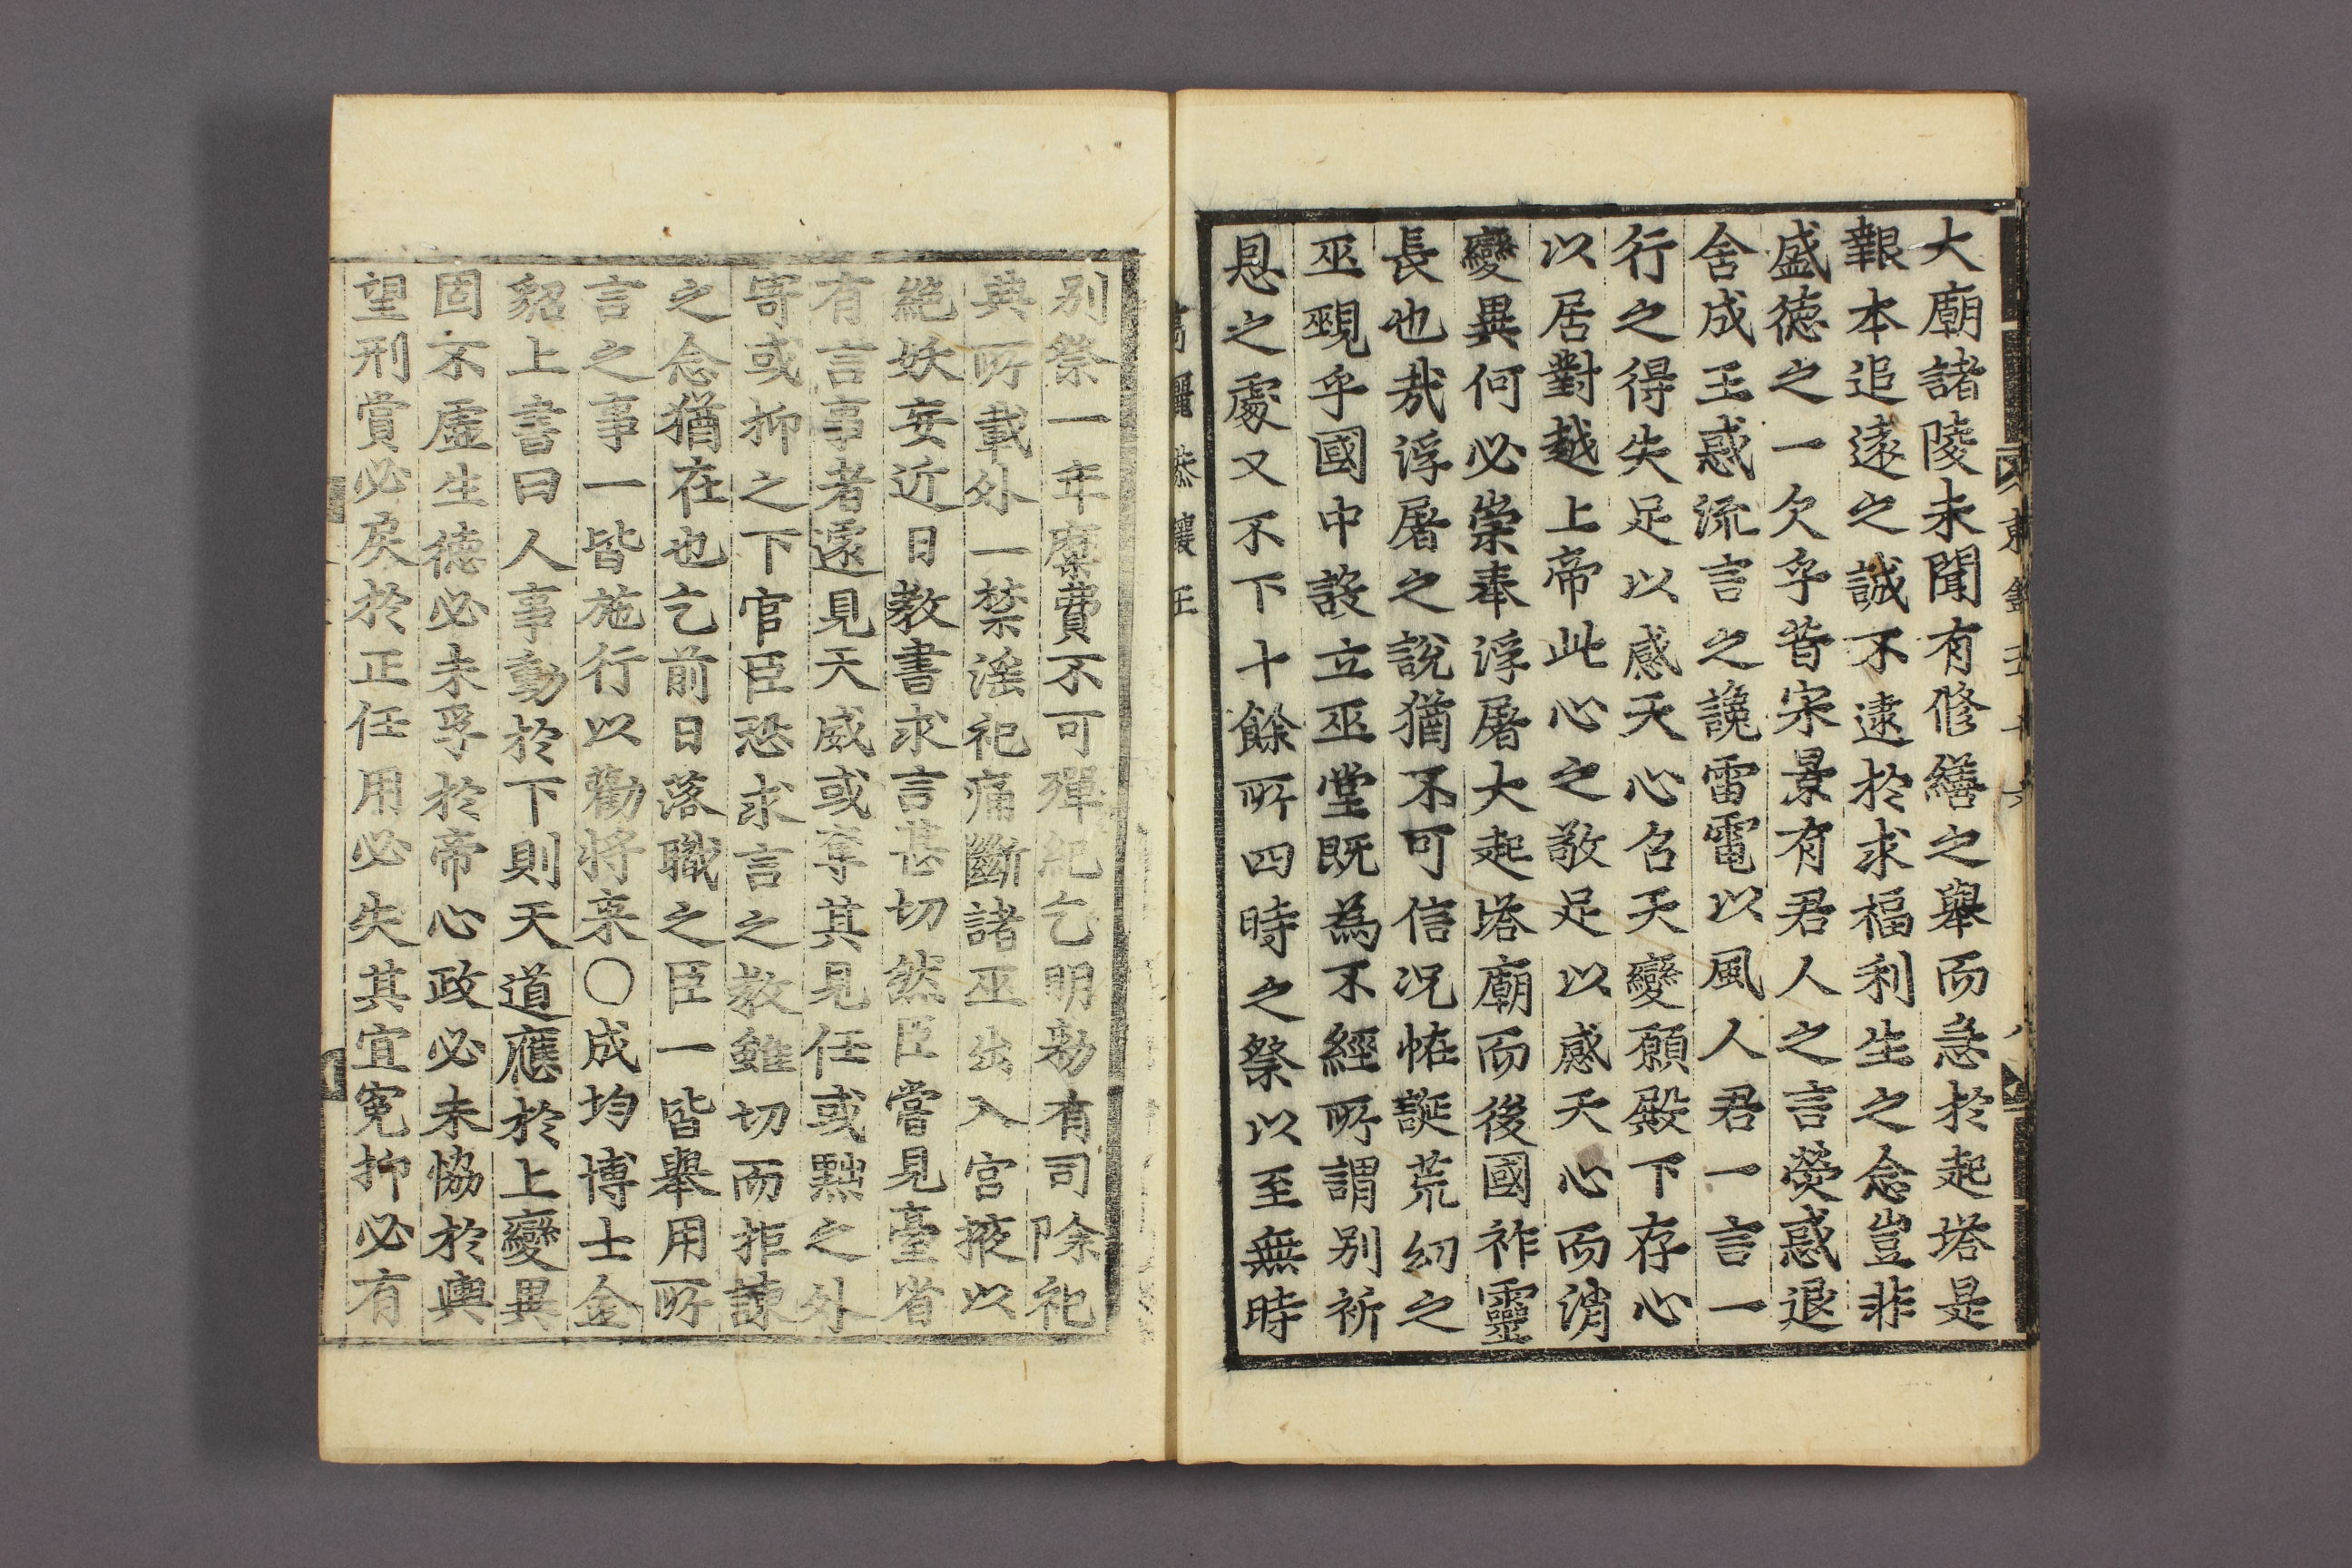 大廟諸陵未聞有修繕之舉而急於起塔是
報本追遠之誠不逮於求福利生之念豈非
盛徳之一欠乎昔宋景有君人之言熒惑退
舍成王惑流言之讒雷電以風人君一言一
行之得失足以感天心召天變願殿下存心
以居對越上帝此心之敬足以感天心而消
變異何必崇奉浮屠大起塔廟而後國祚靈
長也㦲浮屠之說猶不可信况恠誕荒幻之
巫覡乎國中設立巫堂既為不經所謂別祈
恩之處又不下十餘所四時之祭以至無時
高麗恭讓王
別祭一年糜費不可殫紀乞明勑有司除祀
典所載外一禁滛祀痛斷諸巫出入宮掖以
絶妖妄近日敎書求言甚切然臣嘗見臺省
有言事者遽見天威或奪其見任或黜之外
寄或抑之下官臣恐求言之敎雖切而拒諫
之念猶在也乞前日落職之臣一皆舉用所
言之事一皆施行以勸將来○成均博士金
貂上書曰人事動於下則天道應於上變異
固不虛生徳必未孚於帝心政必未恊於輿
望刑賞必戾於正任用必失其宜寃抑必有